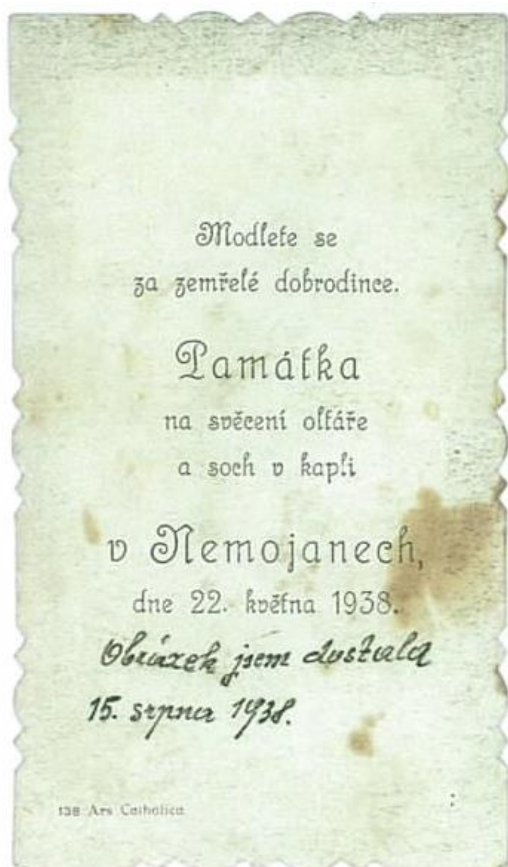 Modlete se
za zemřelé dobrodince.
Památka
na svěcení oltáře
a soch v kapli
v Nemojanech,
dne 22. května 1938.
Obrázek jsem dostala
15. srpna 1938.
138 Ars Catholica